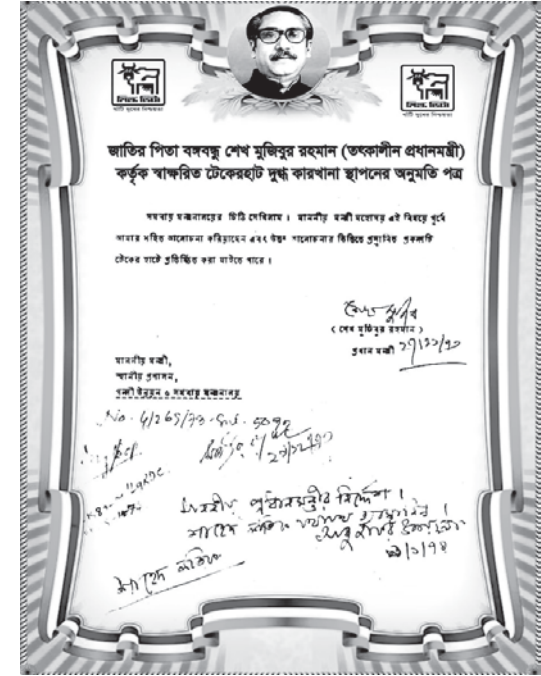 মিল্ক ভিটা
খাঁটি দুধের নিশ্চয়তা
মিল্ক ভিটা
খাঁটি দুধের নিশ্চয়তা
জাতির পিতা বঙ্গবন্ধু শেখ মুজিবুর রহমান (তৎকালীন প্রধানমন্ত্রী)
কর্তৃক স্বাক্ষরিত টেকেরহাট দুগ্ধ কারখানা স্থাপনের অনুমতি পত্র
সমবায় মন্ত্রনালয়ের চিঠি দেখিলাম । মাননীয় মন্ত্রী মহোদয় এই বিষয়ে পূর্বে
আমার সহিত আলোচনা করিয়াছেন এবং উক্ত আলোচনার ভিত্তিতে প্রস্তাবিত প্রকল্পটি
টেকের হাটে প্রতিষ্ঠিত করা যাইতে পারে ।
শেখ মুজিব
( শেখ মুজিবুর রহমান )
প্রধান মন্ত্রী ২৭/১২/৭৩
মাননীয় মন্ত্রী,
স্থানীয় প্রশাসন,
পল্লী উন্নয়ন ও সমবায় মন্ত্রনালয়
No. 4/265/73
২৭/১২/৭৩
মাননীয় প্রধানমন্ত্রীর নির্দেশ ।